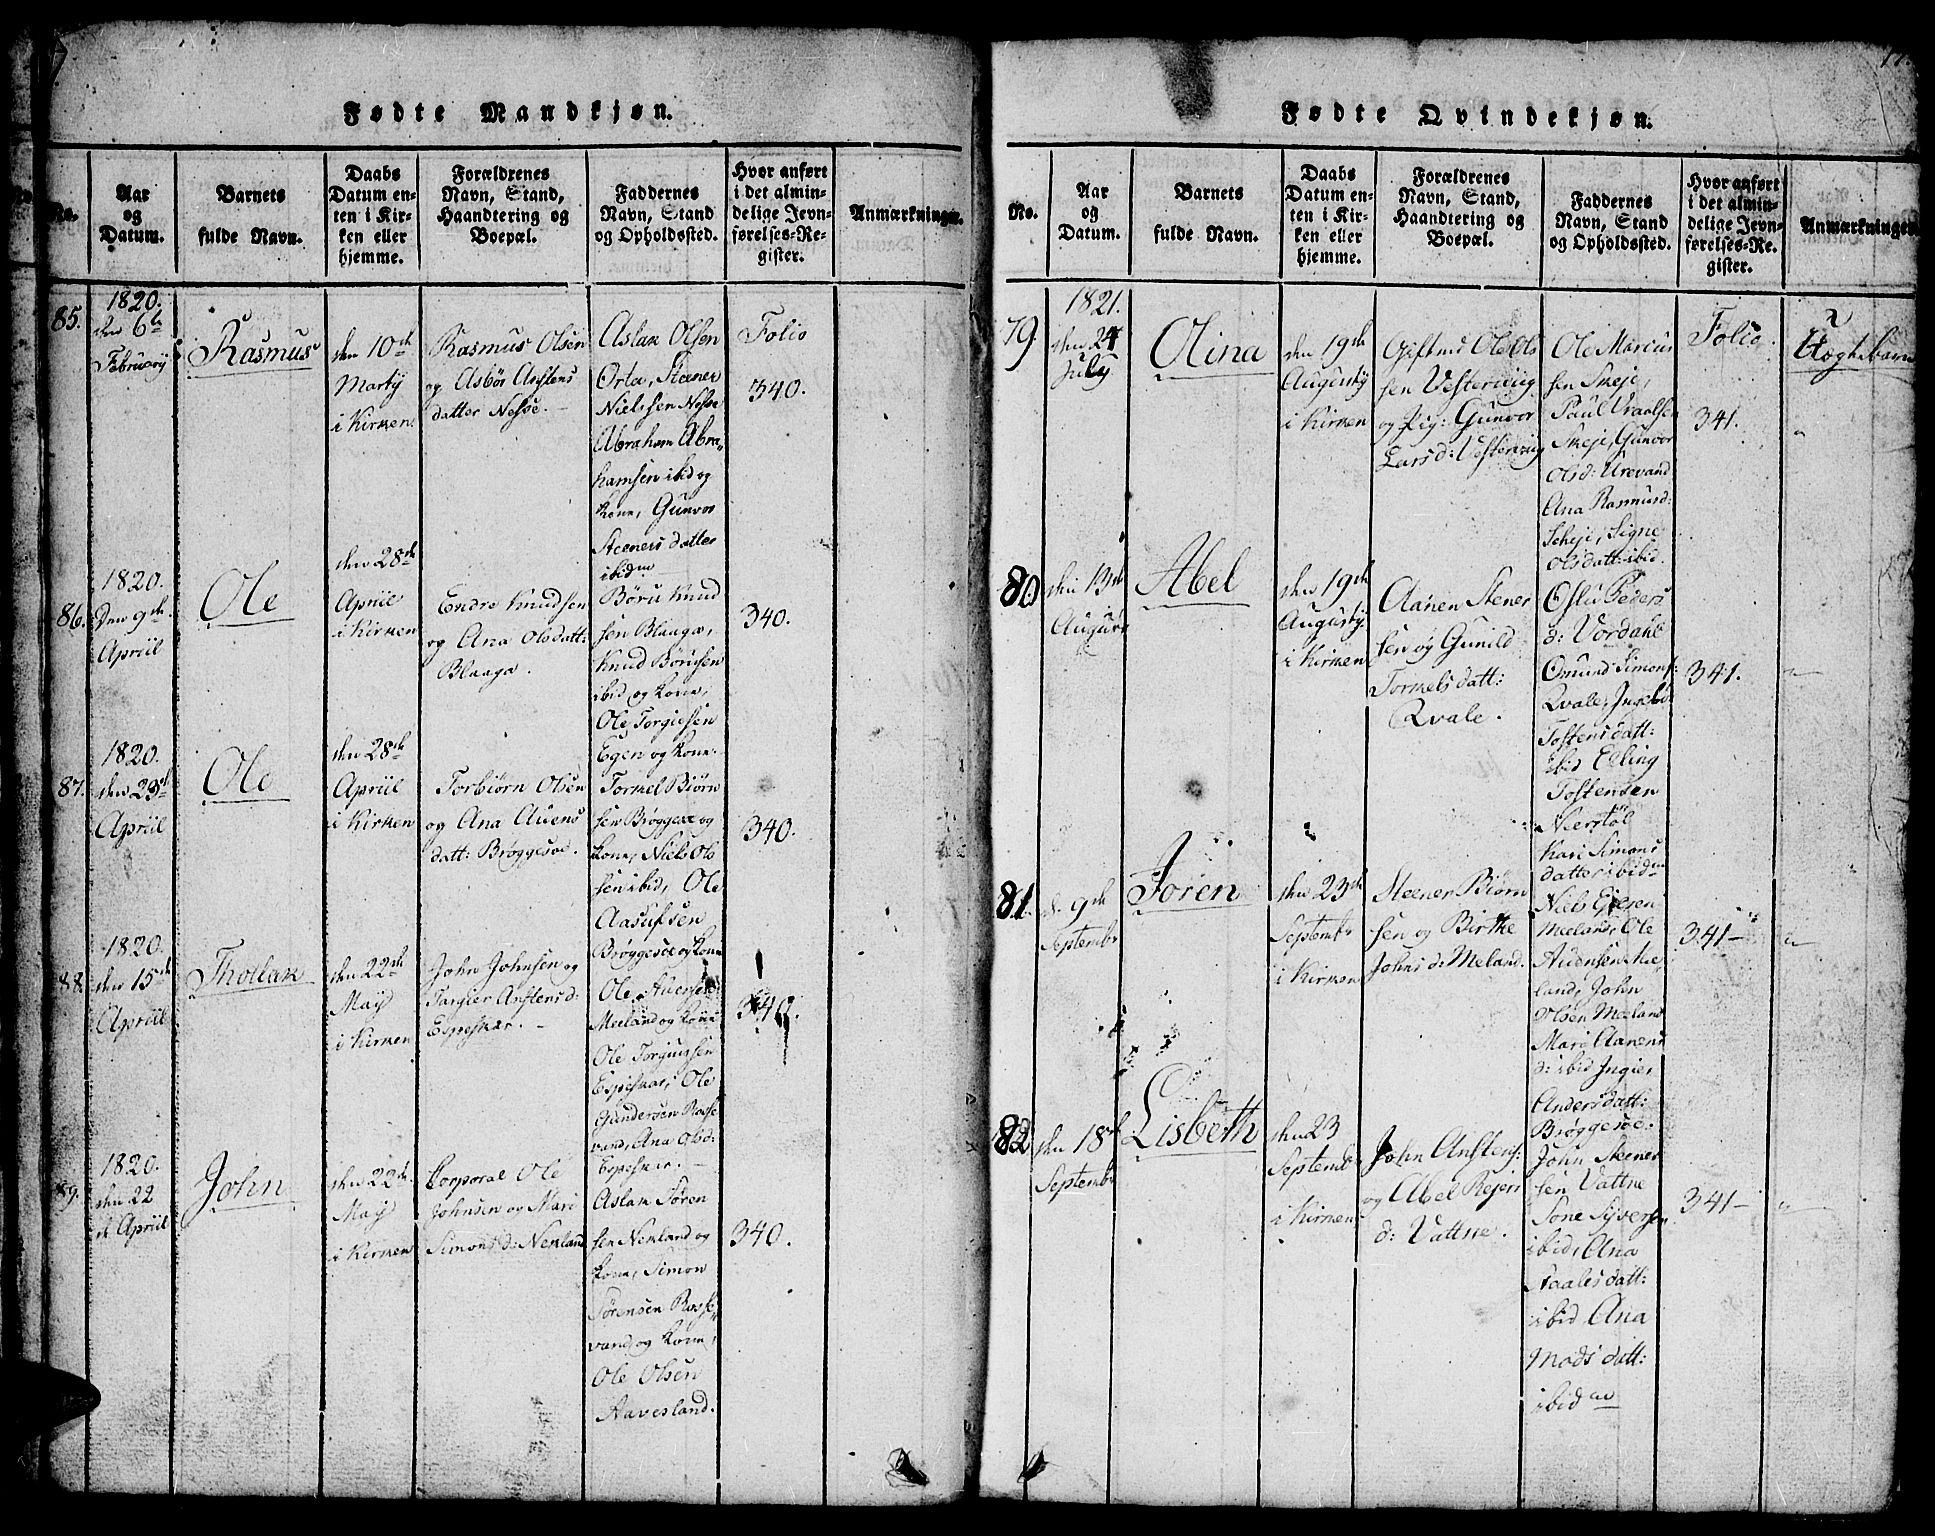 17.
Fødte Mandkjøn.
No.
Aar
og
Datum.
Barnets
fulde Navn.
Daabs
Datum en-
ten i Kir-
ken eller
hjemme.
Forældrenes
Navn, Stand,
Haandtering og
Boepæl.
Faddernes
Navn, Stand
og Opholdssted.
Hvor anført
i det almin-
delige Jevn-
førelses-Re-
gister.
Anmærkninger.
85.
1820.
den 6te
Februarÿ
Rasmus
den 10de
Martÿ
i Kirken.
Rasmus Olsen
og Asbør Anstens
datter Nesse.
Aslak Olsen
Orte, Steener
Nielssen Nesse
Abraham Abra-
hamsen ibid og
kone, Gunvor
Steeners datter
ibidm
Folio
340.
86.
1820.
Den 9de
Apriil
Ole
den 28de
Apriil
i Kirken
Endre Knudsen
og Ana Olsdatt:
Blaaga.
Børu Knud
sen Blaaga,
Knud Børusen
ibid, og kone,
Ole Torgiesen
Egen og kone.
340.
87.
1820.
den 23de
Apriil
Ole
den 28de
Apriil
i Kirken
Torbiørn Olsen
og Ana Auens
datt: Brøggesøe.
Tormel Biørn
sen Brøggesøe og
kone, Niels Ols
sen ibid, Ole
Aasulfsen
Brøggesøe og kone
340.
88.
1820.
den 15de
Apriil
Thollak
den 22de
Maÿ
i Kirken
John Johnsen og
Targier Anstens d:
Espeskar.
Ole Auensen
Meeland og kone
Ole Torgiussen
Espeskar, Ole
Gundersen Rosse
vand, Ana Olsd:
Espeskar.
340.
89.
1820.
den 22
de Apriil
John
den 22de
Maÿ
i Kirken
Corporal Ole
Johnsen og Mari
Simons d: Nekland
Aslak Søren
sen Nekland og
kone, Simon
Sørensen Rosse
vand og kone,
Ole Olsen
Aavesland.
340.
Fødte Qvindekjøn.
No.
Aar
og
Datum.
Barnets
fulde Navn.
Daabs
Datum en-
ten i Kir-
ken eller
hjemme.
Forældrenes
Navn, Stand,
Haandtering og
Boepæl.
Faddernes
Navn, Stand
og Opholdssted.
Hvor anført
i det almin-
delige Jevn-
førelses-Re-
gister.
Anmærkninger.
79.
1821.
den 24
July
Olina
den 19de
Augustÿ
i Kirken
Gift md Ole Ols
sen Vesterviig
og Pig: Gunvor
Lars d: Vesterviig
Ole Marcus
sen Skeje,
Paul Vraalsen
Skeje, Gunvor
Olsd: Urevand
Ana Rasmusd:
Scheje, Signe
Olsdatt: ibid.
Folio
341.
Uægte barn
80
den 13de
August
Abel
den 19de
Augustÿ
i Kirken
Aanen Stener
sen og Gunild
Tormels datt:
Qvale.
Oslu Peders
d: Vordahl
Omund Simons:
Qvale, Ingebor
Tostens datt:
ibid Elling
Tostensen
Neerstøl
Kari Simons
datter ibidm
341.
81.
d. 9de
Septembr
Joren
den 23de
Septembr
i Kirken
Steener Biørn
sen og Birthe
Johns d: Meland.
Niels Ejesen
Meeland, Ole
Audensen Me-
land, John
Olsen Meeland
Mari Aanens
d: ibid Ingier
Anders datt:
Brøggesøe.
341 –
82
den 18de
Septembr
Lisbeth
den 23
Septembr
i Kirken
John Anstens:
og Abel Rejers
d: Vattne.
John Steener
sen Vattne
Sone Syversen
ibid, Ana
Staales datt:
ibid, Ana
Mads datt:
ibidm
341 –